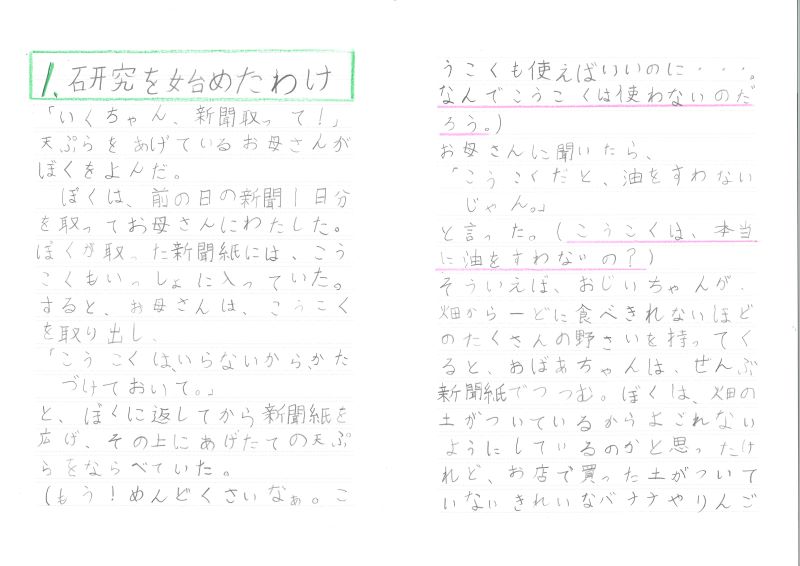 1.研究を始めたわけ
「いくちゃん、新聞取って！」
天ぷらをあげているお母さんが
ぼくをよんだ。
ぼくは、前の日の新聞1日分
を取ってお母さんにわたした。
ぼくが取った新聞紙には、こう
こくもいっしょに入っていた。
すると、お母さんは、こうこく
を取り出し、
「こうこくは、いらないから、かた
づけておいて。」
と、ぼくに返してから新聞紙を
広げ、その上にあげたての天ぷ
らをならべていた。
(もう！めんどくさいなぁ。こ
うこくも使えばいいのに・・・。
なんでこうこくは使わないのだ
ろう。)
お母さんに聞いたら、
「こうこくだと、油をすわない
じゃん。」
と言った。(こうこくは、本当
に油をすわないの？)
そういえば、おじいちゃんが、
畑から一どに食べきれないほど
のたくさんの野さいを持ってく
ると、おばあちゃんは、ぜんぶ
新聞紙でつつむ。ぼくは、畑の
土がついているからよごれない
ようにしているのかと思ったけ
れど、お店で買った土がついて
いないきれいなバナナやりんご